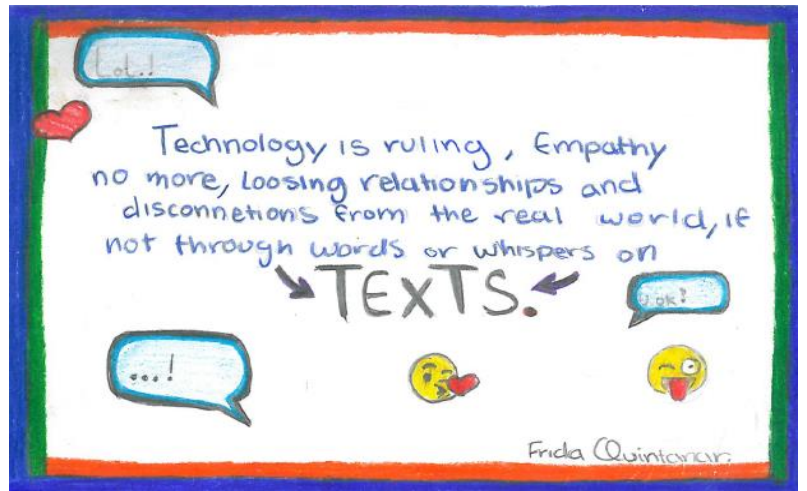 Lol.!
Technology is ruling, Empathy
no more, Loosing relationships and
disconnetions from the real world, if
not through words or whispers on
TEXTS.
ok?
...!
Frida Quintanar.